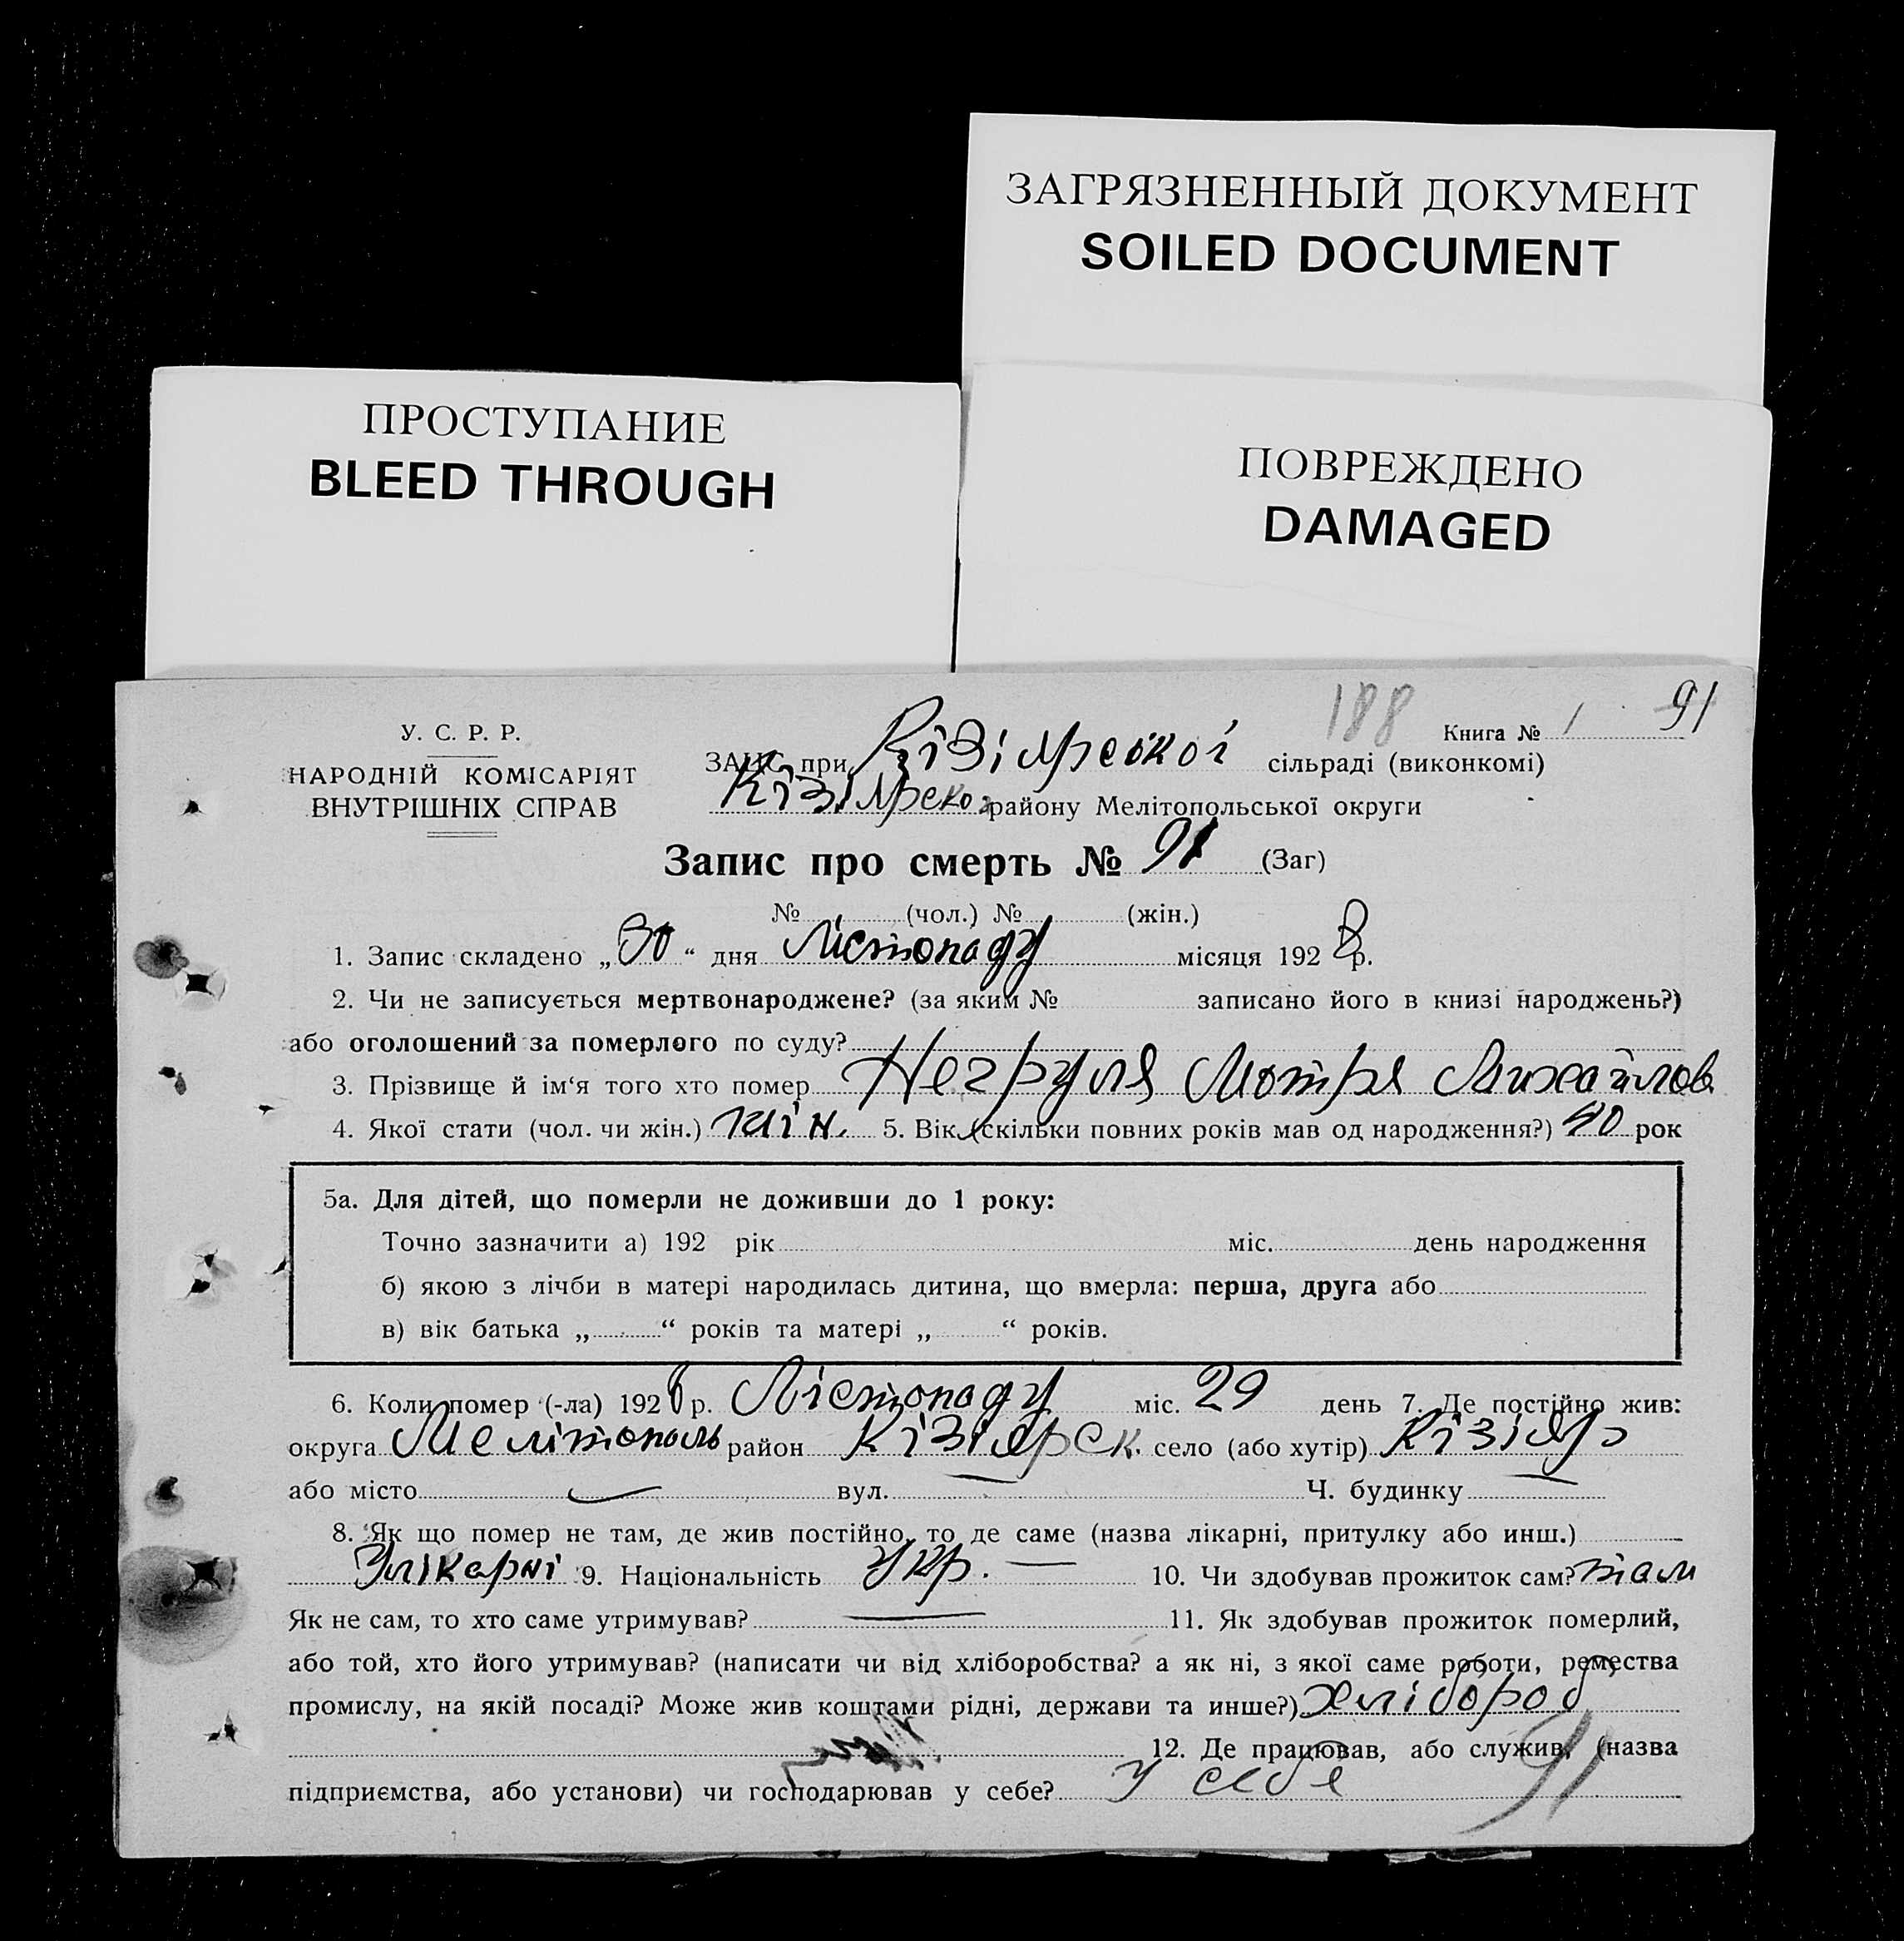 ЗАГРЯЗНЕННЫЙ ДОКУМЕНТ
SOILED DOCUMENT
ПРОСТУПАНИЕ
BLEED THROUGH
ПОВРЕЖДЕНО
DAMAGED
188 91
У. С. Р. Р.
НАРОДНІЙ КОМІСАРІЯТ
ВНУТРІШНІХ СПРАВ
Книга № 1
ЗАГС при Кізіярської сільраді (виконкомі)
Кізіярског району Мелітопольської округи
Запис про смерть № 91 (Заг)
№ (чол.) № (жін.)
1. Запис складено „30“ дня Лістопаду місяця 1928 р.
2. Чи не записується мертвонароджене? (за яким № записано його в книзі народжень?)
або оголошений за померлого по суду?
3. Прізвище й ім‘я того хто помер Негруля Мотря Михайлов
4. Якої стати (чол. чи жін.) жін. 5. Вік (скільки повних років мав од народження?) 40 рок
5а. Для дітей, що померли не доживши до 1 року:
Точно зазначити а) 192 рік міс. день народження
б) якою з лічби в матері народилась дитина, що вмерла: перша, друга або
в) вік батька „ “ років та матері „ “ років.
6. Коли помер (-ла) 1928 р. Лістопаду міс. 29 день 7. Де постійно жив:
округа Мелітополь район Кізіярск. село (або хутір) Кізіяр
або місто вул. Ч. будинку
8. Як що помер не там, де жив постійно, то де саме (назва лікарні, притулку або инш.)
Улікарні 9. Національність Укр. — 10. Чи здобував прожиток сам? там
Як не сам, то хто саме утримував? — 11. Як здобував прожиток померлий,
або той, хто його утримував? (написати чи від хліборобства? а як ні, з якої саме роботи, ремества
промислу, на якій посаді? Може жив коштами рідні, держави та инше?) хлібороб
12. Де працював, або служив, (назва
підприємства, або установи) чи господарював у себе? У себе 91